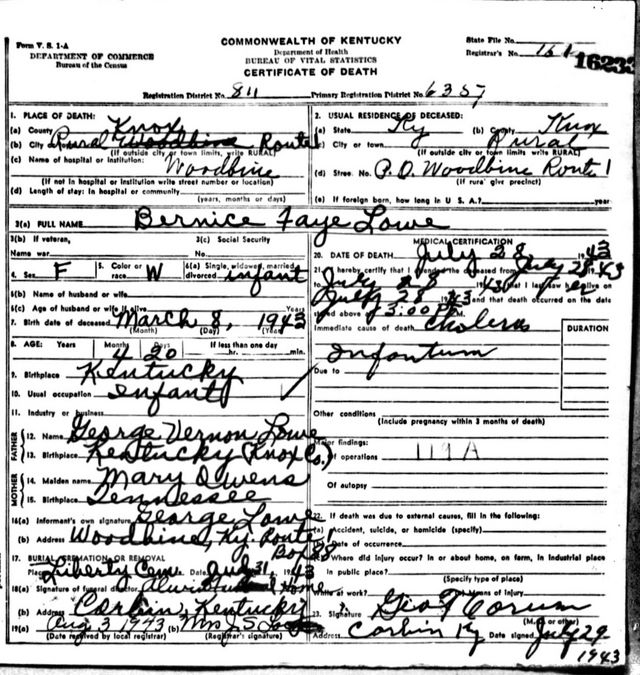 Form V. S. 1-A
DEPARTMENT OF COMMERCE
Bureau of the Census
COMMONWEALTH OF KENTUCKY
Department of Health
BUREAU OF VITAL STATISTICS
CERTIFICATE OF DEATH
State File No.
Registrar's No.
16233
Registration District No. 811
Primary Registration District No. 6357
1. PLACE OF DEATH:
(a) County Knox
(b) City Rural Woodbine Route 1
(If outside city or town limits, write RURAL)
(c) Name of hospital or institution: Woodbine
(If not in hospital or institution write street number or location)
(d) Length of stay: In hospital or community
(years, months or days)
2. USUAL RESIDENCE OF DECEASED:
(a) State Ky (b) County Knox
(c) City or town Rural
(If outside city or town limits write RURAL)
(d) Street No. P.O. Woodbine Route 1
(If rural give precinct)
(e) If foreign born, how long in U. S. A.? year
3(a) FULL NAME Bernice Faye Lowe
3(b) If veteran, 3(c) Social Security
Name war No.
4. Sex F 5. Color or race W 6(a) Single, widowed, married, divorced infant
6(b) Name of husband or wife
6(c) Age of husband or wife if alive
7. Birth date of deceased March 8, 1943
(Month) (Day) (Year)
8. AGE: Years Months Days If less than one day
4 20 hr. min.
9. Birthplace Kentucky
10. Usual occupation Infant
11. Industry or business
FATHER
12. Name George Vernon Lowe
13. Birthplace Kentucky (Knox Co.)
MOTHER
14. Maiden name Mary Owens
15. Birthplace Tennessee
16(a) Informant's own signature George Lowe
(b) Address Woodbine, Ky. Route 1
Box 88
17. BURIAL, CREMATION OR REMOVAL
Place Liberty Cem. Date July 31, 1943
18(a) Signature of funeral director Home
(b) Address Corbin, Kentucky
19(a) Aug 3 1943 (b) Mrs J S
(Date received by local registrar) (Registrar's signature)
MEDICAL CERTIFICATION
20. DATE OF DEATH July 28 1943
21. I hereby certify that I attended the deceased from July 28 43
to July 28 1943 that I last saw her alive on
July 28 1943 and that death occurred on the date
stated above at 3:00 P.M.
Immediate cause of death Cholera
DURATION
Infantum
Due to
Other conditions
(Include pregnancy within 3 months of death)
Major findings:
Of operations 119A
Of autopsy
22. If death was due to external causes, fill in the following:
(a) Accident, suicide, or homicide (specify)
(b) Date of occurrence
(c) Where did injury occur? In or about home, on farm, in industrial place
in public place?
(Specify type of place)
While at work? Means of injury
23. Signature Geo F Corum
(M.D. or other)
Address Corbin Ky Date signed July 29
1943